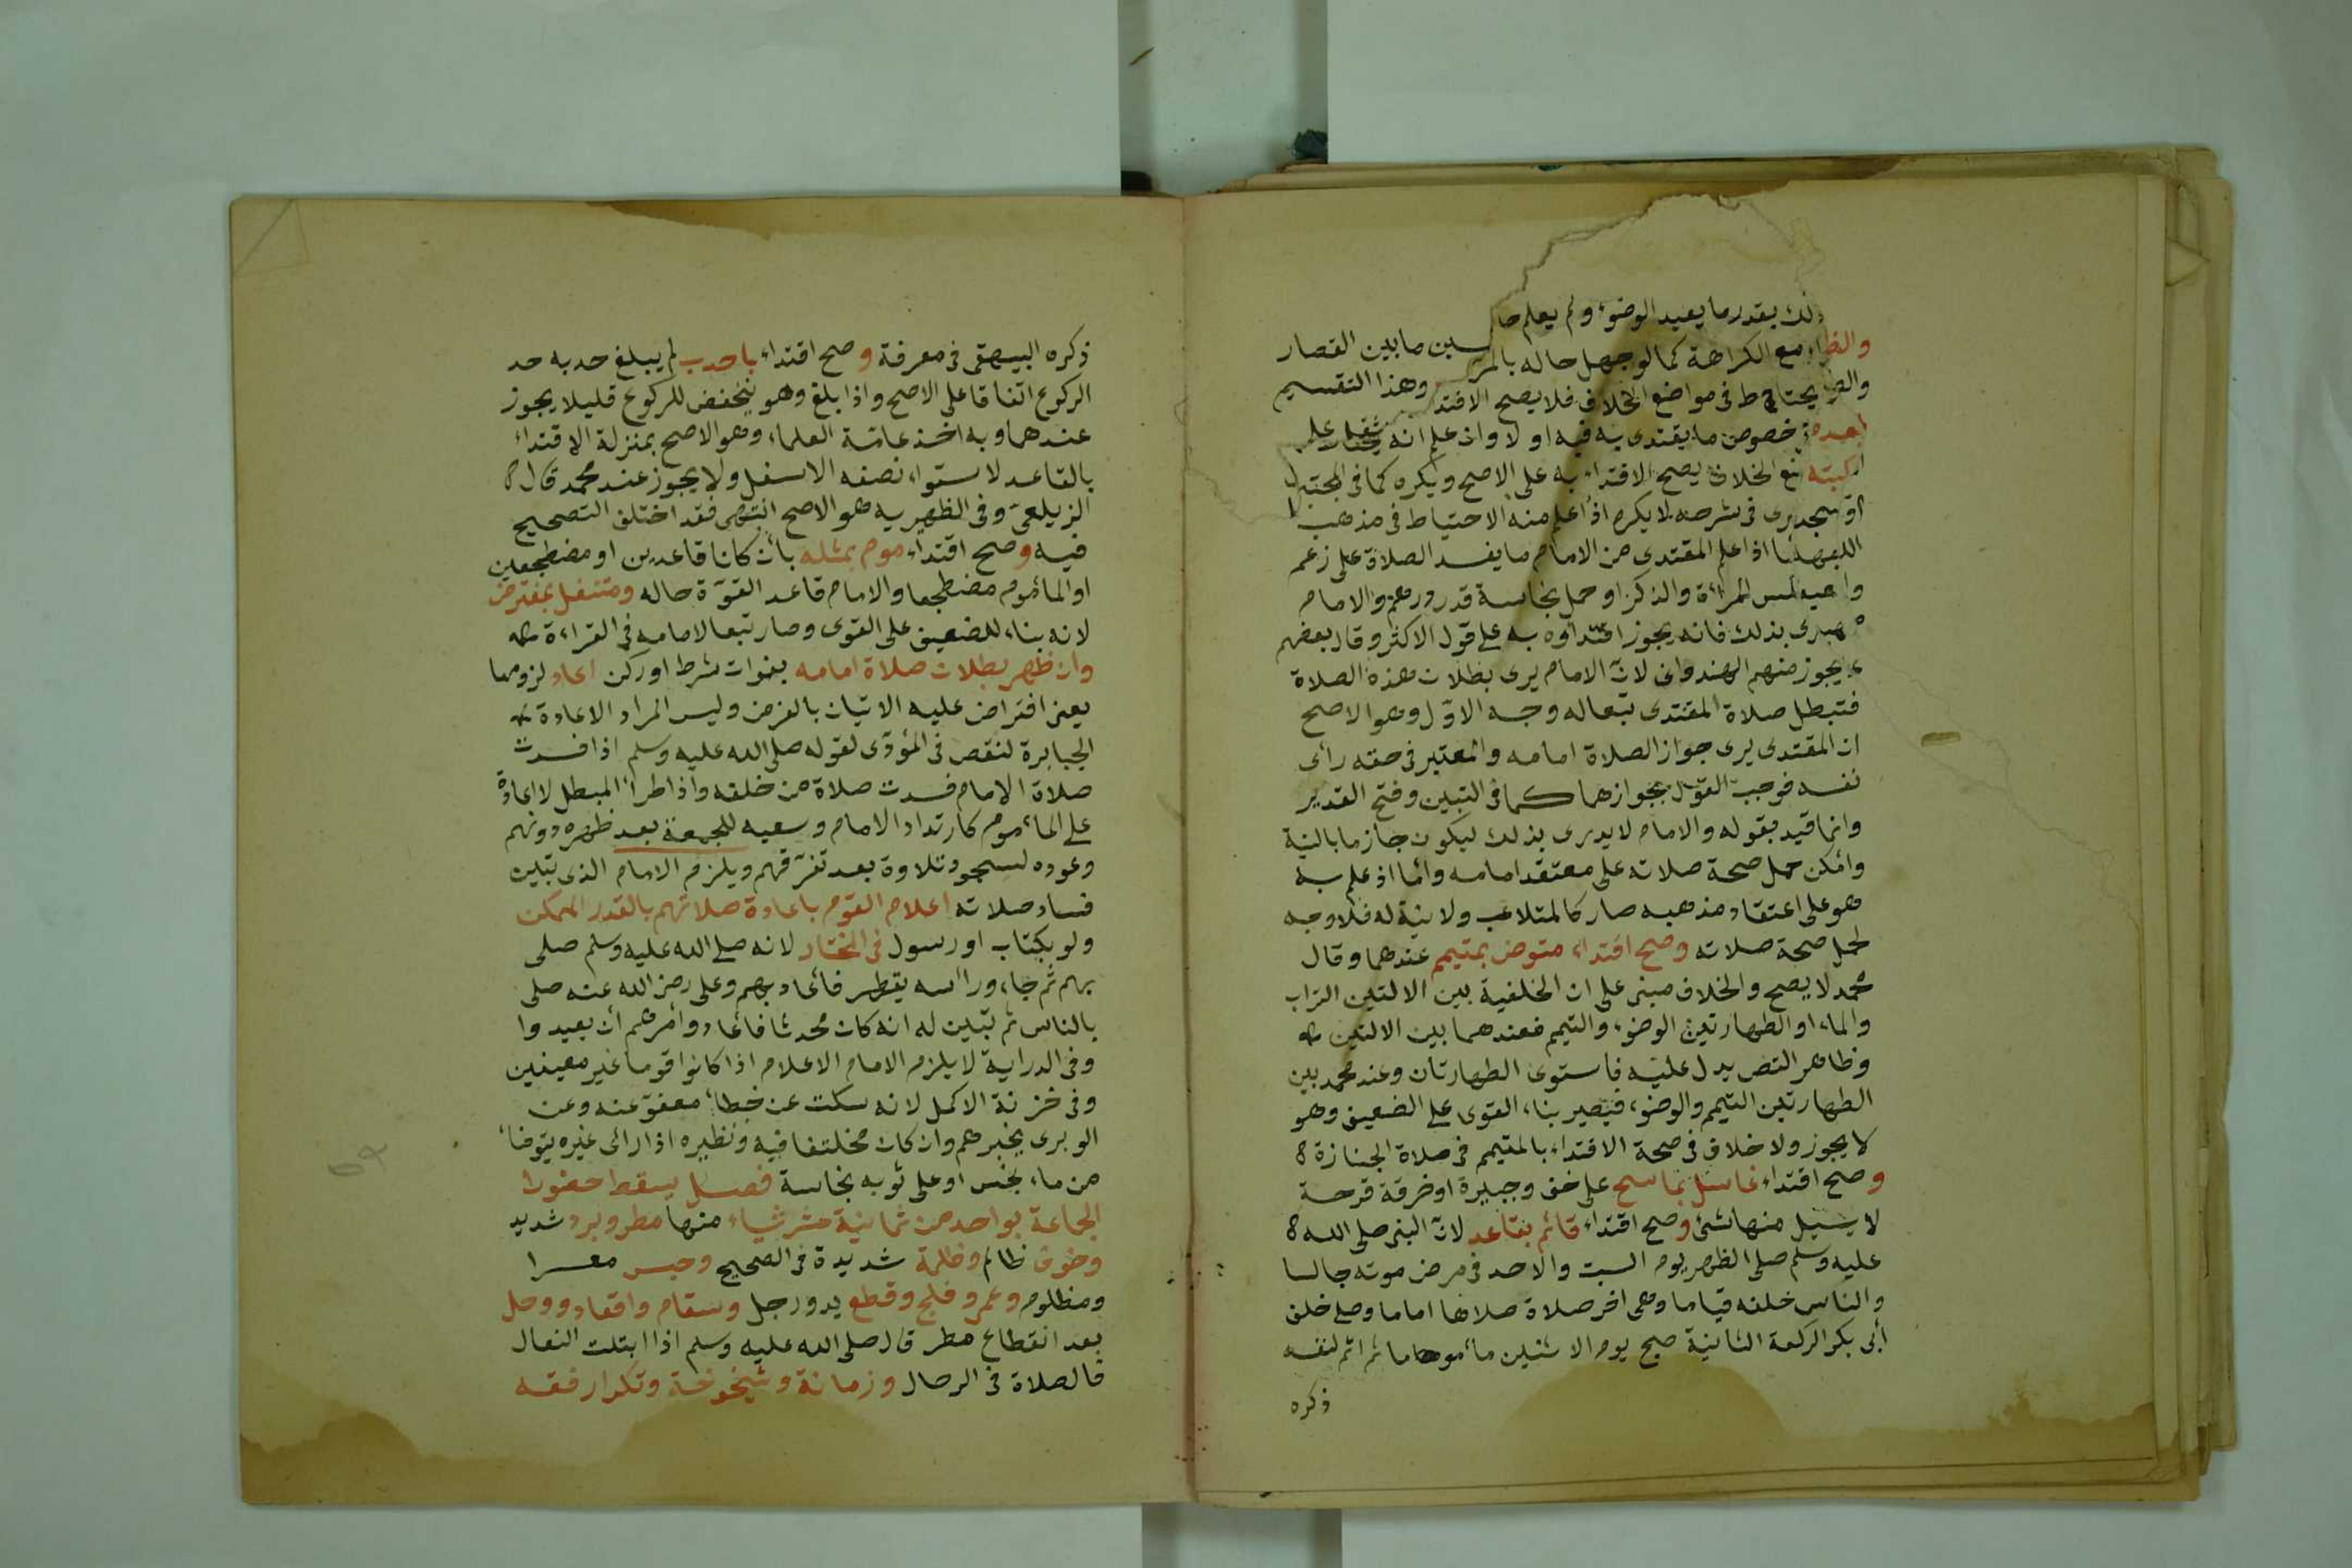 ذلك بقدر ما يعيد الوضوء ولم يعلم ما
مع الكراهة كما لو جهل حاله بالمر ما بين القصار
يحتاط في مواضع الخلاف فلا يصح الاقتد وهذا التقسيم
خصوص ما يقتدى به فيه او لا واذ علم انه
الخلاف يصح الاقتداء به على الاصح ويكره كما في المجتبى
في شرحه لا يكره اذا علم منه الاحتياط في مذهب
اذا علم المقتدى من الامام ما يفسد الصلاة على زعم
المرأة والذكر او حمل نجاسة قدر درهم والامام
يدرى بذلك فانه يجوز اقتداؤه به على قول الاكثر وقال بعضهم
يجوز منهم الهندوانى لان الامام يرى بطلان هذه الصلاة
فتبطل صلاة المقتدى تبعا له وجه الاول وهو الاصح
ان المقتدى يرى جواز الصلاة امامه والمعتبر في حقه رأى
نفسه فوجب القول بجوازها كما في التبيين وفتح القدير
وانما قيد بقوله والامام لا يدرى بذلك ليكون جازما بالنية
وامكن حمل صحة صلاته على معتقد امامه واما اذ علم به
هو على اعتقاد مذهبه صار كالمتلاعب ولا نية له فلا وجه
لحمل صحة صلاته وصح اقتداء متوض بمتيمم عندهما وقال
محمد لا يصح والخلاف مبنى على ان الخلفية بين الالتين التراب
والماء او الطهارتين الوضوء والتيمم فعندهما بين الالتين
وظاهر النص يدل عليه فاستوى الطهارتان وعند محمد بين
الطهارتين التيمم والوضوء فيصير بناء القوى على الضعيف وهو
لا يجوز ولا خلاف في صحة الاقتداء بالمتيمم في صلاة الجنازة
وصح اقتداء غاسل بماسح على خف وجبيرة او خرقة قرحة
لا يسيل منها شئ وصح اقتداء قائم بقاعد لان النبى صلى الله
عليه وسلم صلى الظهر يوم السبت والاحد في مرض موته جالسا
والناس خلفه قياما وهى اخر صلاة صلاها اماما وصلى خلف
أبى بكر الركعة الثانية صبح يوم الاثنين مأموما ثم اتم لنفسه
ذكره
ذكره البيهقى في معرفة وصح اقتداء باحدب لم يبلغ حدبه حد
الركوع اتفاقا على الاصح واذا بلغ وهو ينخفض للركوع قليلا يجوز
عندهما وبه اخذ عامة العلماء وهو الاصح بمنزلة الاقتداء
بالقاعد لاستواء نصفه الاسفل ولا يجوز عند محمد قال
الزيلعى وفى الظهيرية هو الاصح انتهى فقد اختلف التصحيح
فيه وصح اقتداء موم بمثله بأن كانا قاعدين او مضطجعين
او المأموم مضطجعا والامام قاعد القوة حاله ومتنفل بمفترض
لانه بناء للضعيف على القوى وصار تبعا لامامه فى القراءة
وان ظهر بطلان صلاة امامه بفوات شرط او ركن اعاد لزوما
يعنى افتراض عليه الاتيان بالفرض وليس المراد الاعادة
الجابرة لنقص فى المؤدى لقوله صلى الله عليه وسلم اذا فسدت
صلاة الامام فسدت صلاة من خلفه واذا طرأ المبطل لا اعادة
على المأموم كارتداد الامام وسعيه للجمعة بعد ظهره دونهم
وعوده لسجود تلاوة بعد تفرقهم ويلزم الامام الذى تبين
فساد صلاته اعلام القوم باعادة صلاتهم بالقدر الممكن
ولو بكتاب او رسول فى المختار لانه صلى الله عليه وسلم صلى
بهم ثم جاء ورأسه يقطر فأعاد بهم وعلى رضى الله عنه صلى
بالناس ثم تبين له انه كان محدثا فأعاد وأمرهم أن يعيدوا
وفى الدراية لا يلزم الامام الاعلام اذا كانوا قوما غير معينين
وفى خزنة الاكمل لانه سكت عن خطأ معفو عنه وعن
الوبرى يخبرهم وان كان مختلفا فيه ونظيره اذا رأى غيره يتوضأ
من ماء نجس او على ثوبه نجاسة فصل يسقط حضور
الجماعة بواحد من ثمانية عشر شياء منها مطر وبرد شديد
وخوف ظالم وظلمة شديدة فى الصحيح وحبس معسرا
ومظلوم وعمى وفلج وقطع يد ورجل وسقام واقعاد ووحل
بعد انقطاع مطر قال صلى الله عليه وسلم اذا ابتلت النعال
فالصلاة فى الرحال وزمانة وشيخوخة وتكرار فقه